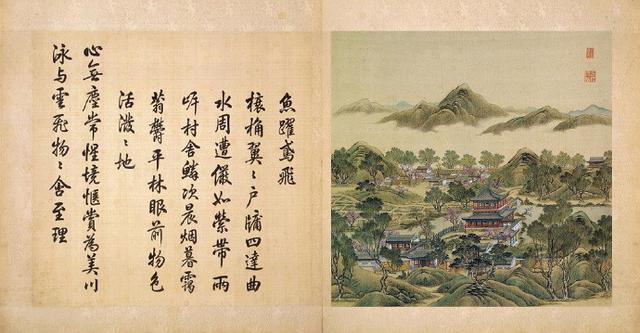 魚躍鳶飛
榱桷翼〻戶牖四達曲
水周遭儼如縈帶兩
岸村舍鱗次晨烟暮靄
蓊鬱平林眼前物色
活潑〻地
心無塵常惺境愜賞為美川
泳與雲飛物〻含至理